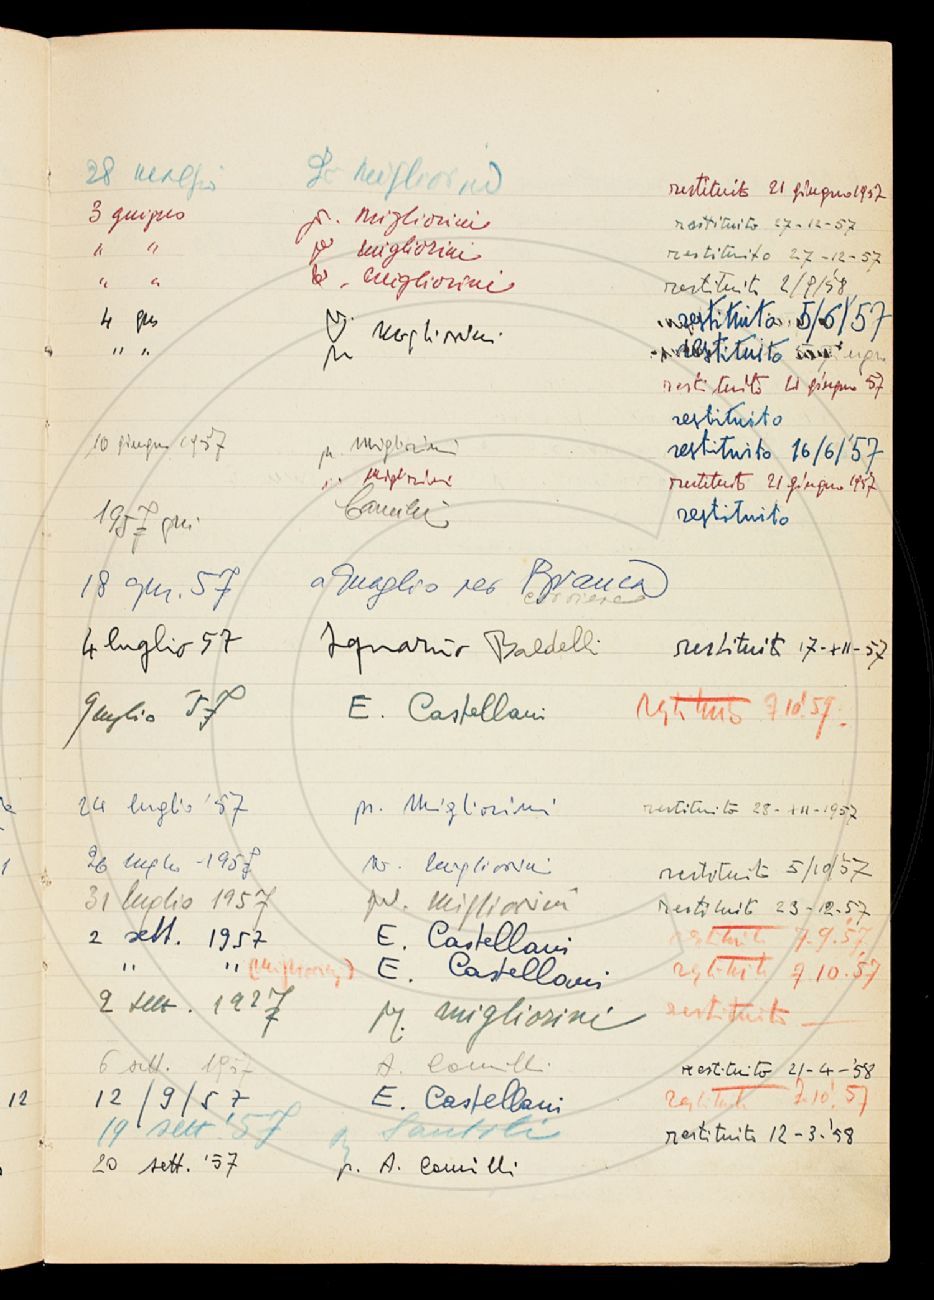 28 maggio Dr Migliorini restituito 21 giugno 1957
3 giugno pr. Migliorini restituito 27-12-57
" " pr Migliorini restituito 27-12-57
" " Migliorini restituito 2/9/58
4 giu Migliorini restituito 5/6/'57
" " pr restituito
restituito 21 giugno 57
restituito
10 giugno 1957 pr. Migliorini restituito 16/6/'57
" Migliorini restituito 21 giugno 1957
1957 giu. Camilli restituito
18 giu. 57 a Quaglio per Branca
4 luglio 57 Ignazio Baldelli restituito 17-XII-57
luglio '57 E. Castellani restituito 7 10. 59.
24 luglio '57 pr. Migliorini restituito 28-XII-1957
26 luglio 1957 pr. Migliorini restituito 5/10/'57
31 luglio 1957 Migliorini restituito 23-12-57
2 sett. 1957 E. Castellani restituito 7.9.57
" " (Migliorini) E. Castellani restituito 7.10.57
2 sett. 1927 Migliorini restituito —
6 sett. 1957 A. Camilli restituito 21-4-'58
12 12/9/57 E. Castellani restituito 7.10.57
19 sett. '57 Santoli restituito 12-3-'58
20 sett. '57 p. A. Camilli